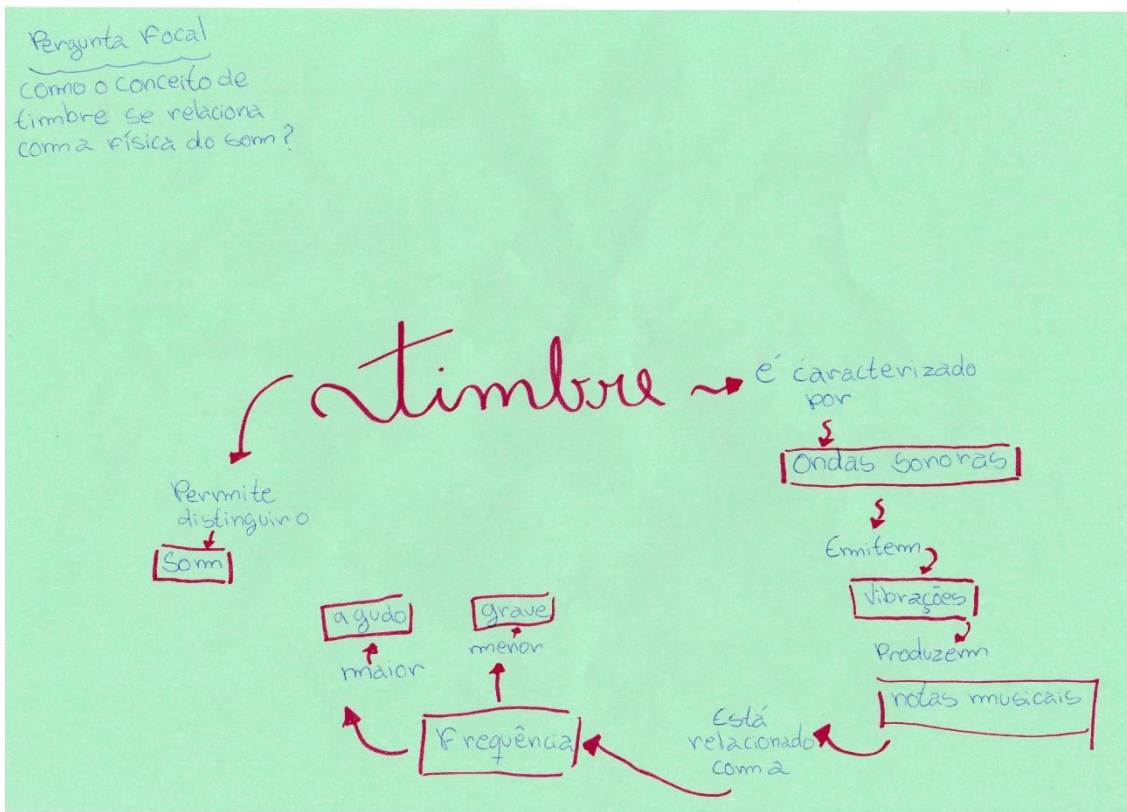 Pergunta Focal
como o conceito de
timbre se relaciona
com a física do som?
timbre
é caracterizado
por
Ondas sonoras
Emitem
Vibrações
Produzem
notas musicais
Está
relacionado
com a
Frequência
menor
grave
maior
agudo
Permite
distinguir o
Som